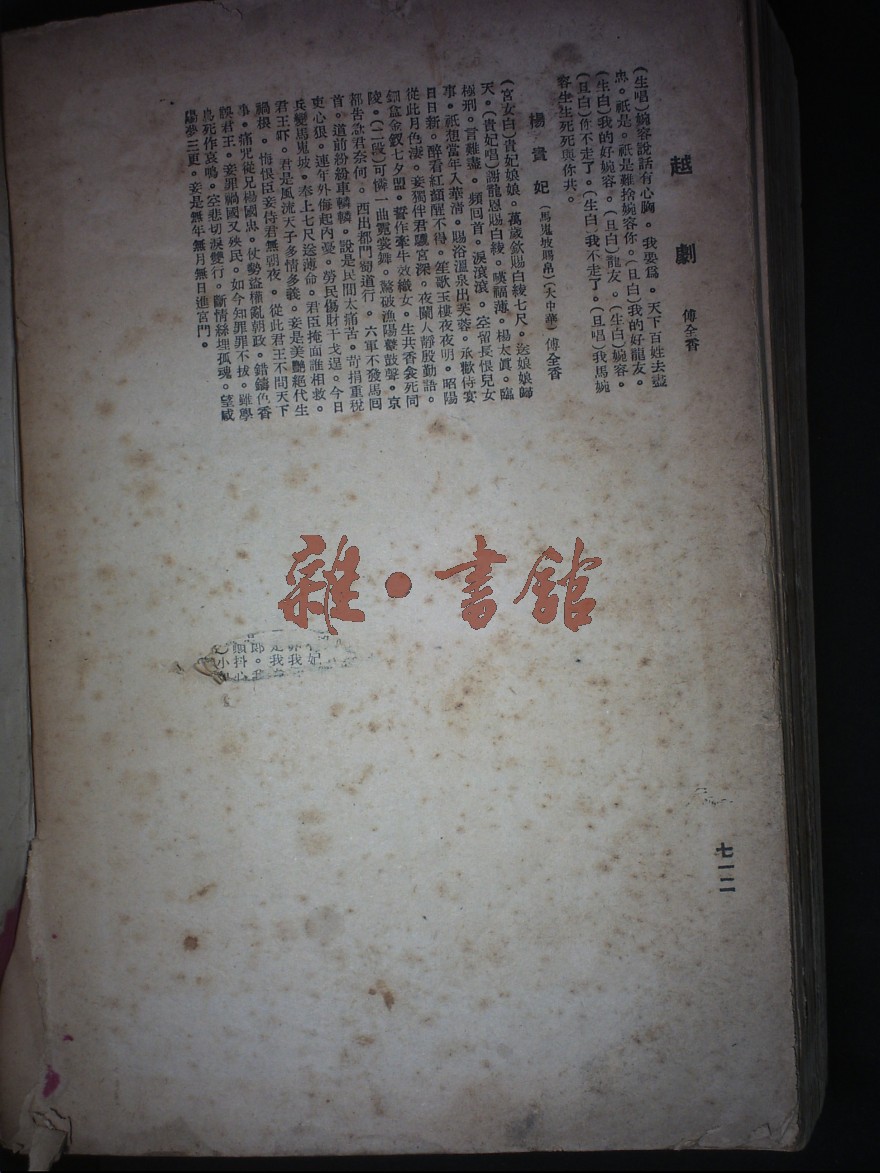 越劇 傅全香
(生唱)婉容說話有心胸。我要爲。天下百姓去盡
忠。祇是。祇是難捨婉容你。(旦白)我的好龍友。
(生白)我的好婉容。(旦白)龍友。(生白)婉容。
(旦白)你不走了。(生白)我不走了。(旦唱)我馬婉
容生生死死與你共。
楊貴妃(馬嵬坡賜帛)(大中華)傅全香
(宮女白)貴妃娘娘。萬歲欽賜白綾七尺。送娘娘歸
天。(貴妃唱)謝龍恩賜白綾。嘆福薄。楊太眞。臨
極刑。言難盡。頻回首。淚滾滾。空留長恨兒女
事。祇想當年入華淸。賜浴溫泉出芙蓉。承歡侍宴
日日新。醉看紅顏醒不得。笙歌玉樓夜夜明。昭陽
從此月色凄。妾獨伴君驪宮深。夜闌人靜殷勤語。
鈿盒金釵七夕盟。誓作牽牛效織女。生共香衾死同
陵。(二段)可憐一曲霓裳舞。驚破漁陽鼙鼓聲。京
都告急君奈何。西出都門蜀道行。六軍不發馬回
首。道前紛紛車轔轔。說是民間太痛苦。苛捐重稅
更心狠。連年外侮起內憂。勞民傷財干戈逞。今日
兵變馬嵬坡。奉上七尺送薄命。君臣掩面誰相救。
君王吓。君是風流天子多情多義。妾是美艷絕代生
禍根。悔恨臣妾侍君無朝夜。從此君王不問天下
事。痛咒從兄楊國忠。仗勢盜權亂朝政。錯鑄色香
誤君王。妾罪禍國又殃民。如今知罪罪不拔。雖學
鳥死作哀鳴。空悲切淚雙行。斷情絲埋孤魂。望咸
陽夢三更。妾是無年無月無日進宮門。
雜·書館
妃
我
是我
郎。我
顫抖心
小
七一二